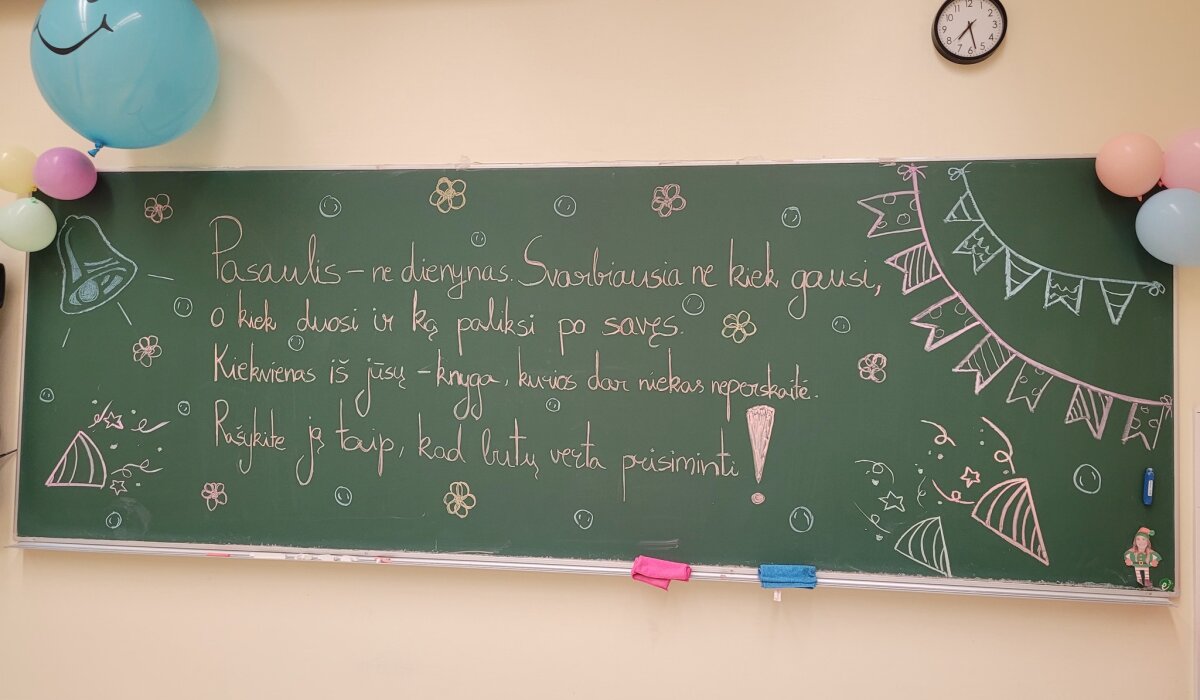 Pasaulis – ne dienynas. Svarbiausia ne kiek gausi,
o kiek duosi ir ką paliksi po savęs.
Kiekvienas iš jūsų – knyga, kurios dar niekas neperskaitė.
Rašykite ją taip, kad butų verta prisiminti!
11 12 1 2 3 4 5 6 7 8 9 10